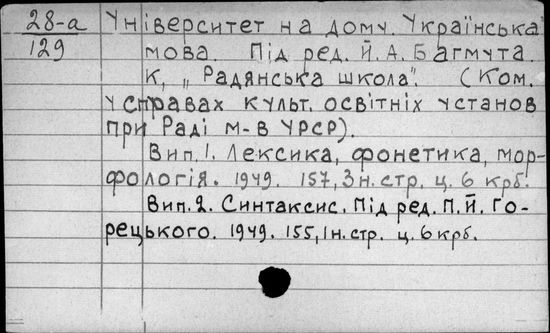 28-а Університет на дому. Українська
129 мова. Під ред. Й. А. Багмута.
К, „Радянська школа". (Ком.
у справах культ. освітніх установ
при Раді м-в УРСР).
Вип. 1. Лексика, фонетика, мор-
фологія. 1949. 157, 3 н. стр. ц. 6 крб.
Вип. 2. Синтаксис. Під ред. П. Й. Го-
рецького. 1949. 155, 1 н. стр. ц. 6 крб.